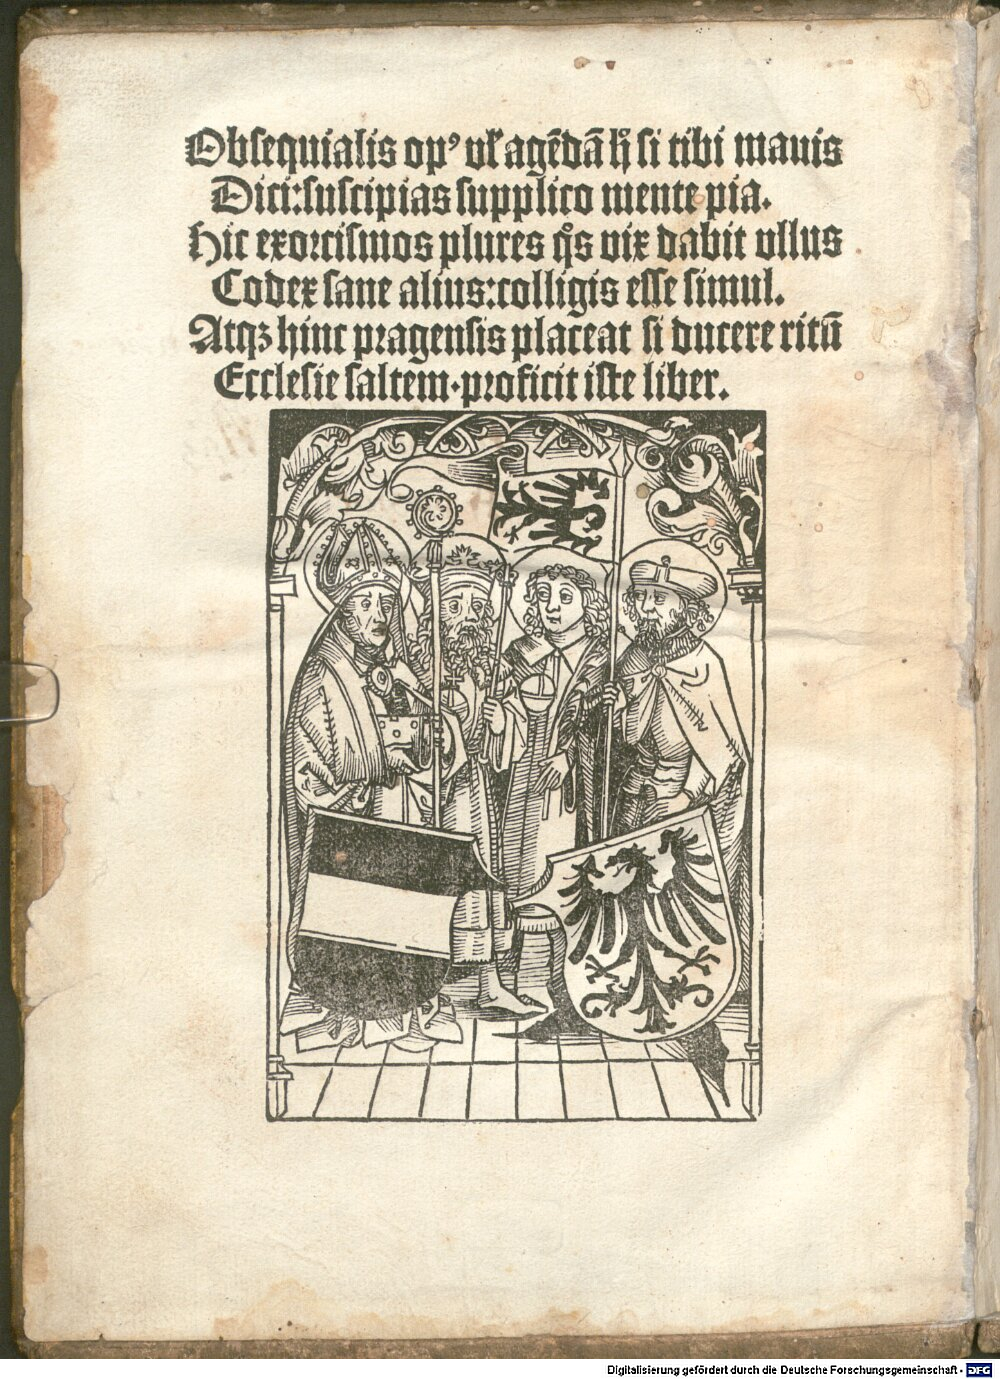 Obsequialis opꝰ vl' agēdā hͦ si tibi mauis
Dici: suscipias supplico mente pia.
Hic exorcismos plures qͦs vix dabit vllus
Codex sane alius: colligis esse simul.
Atqꝫ hinc pragensis placeat si ducere ritū
Ecclesie saltem · proficit iste liber.
Digitalisierung gefördert durch die Deutsche Forschungsgemeinschaft - DFG